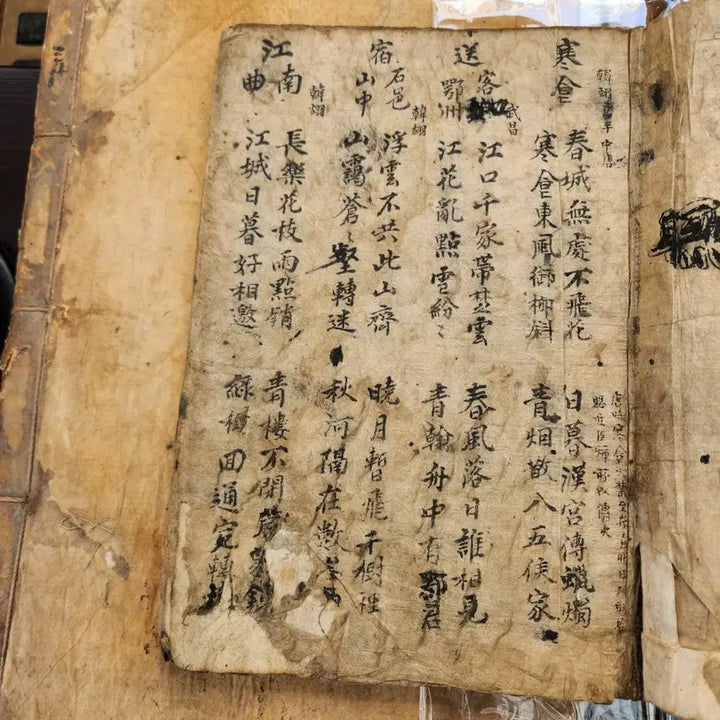 寒食
韓翃
中唐
春城無處不飛花
寒食東風御柳斜
日暮漢宮傳蠟燭
青烟散入五侯家
送客
鄂州
武昌
江口千家帶楚雲
江花亂點雪紛〻
春風落日誰相見
青翰舟中有鄂君
宿石邑
山中
韓翃
浮雲不共此山齊
山靄蒼〻轉迷
曉月暫飛千樹裡
秋河隔在數峯西
江南
曲
韓翃
長樂花枝雨點銷
江城日暮好相邀
青樓不開
綠回通宛轉